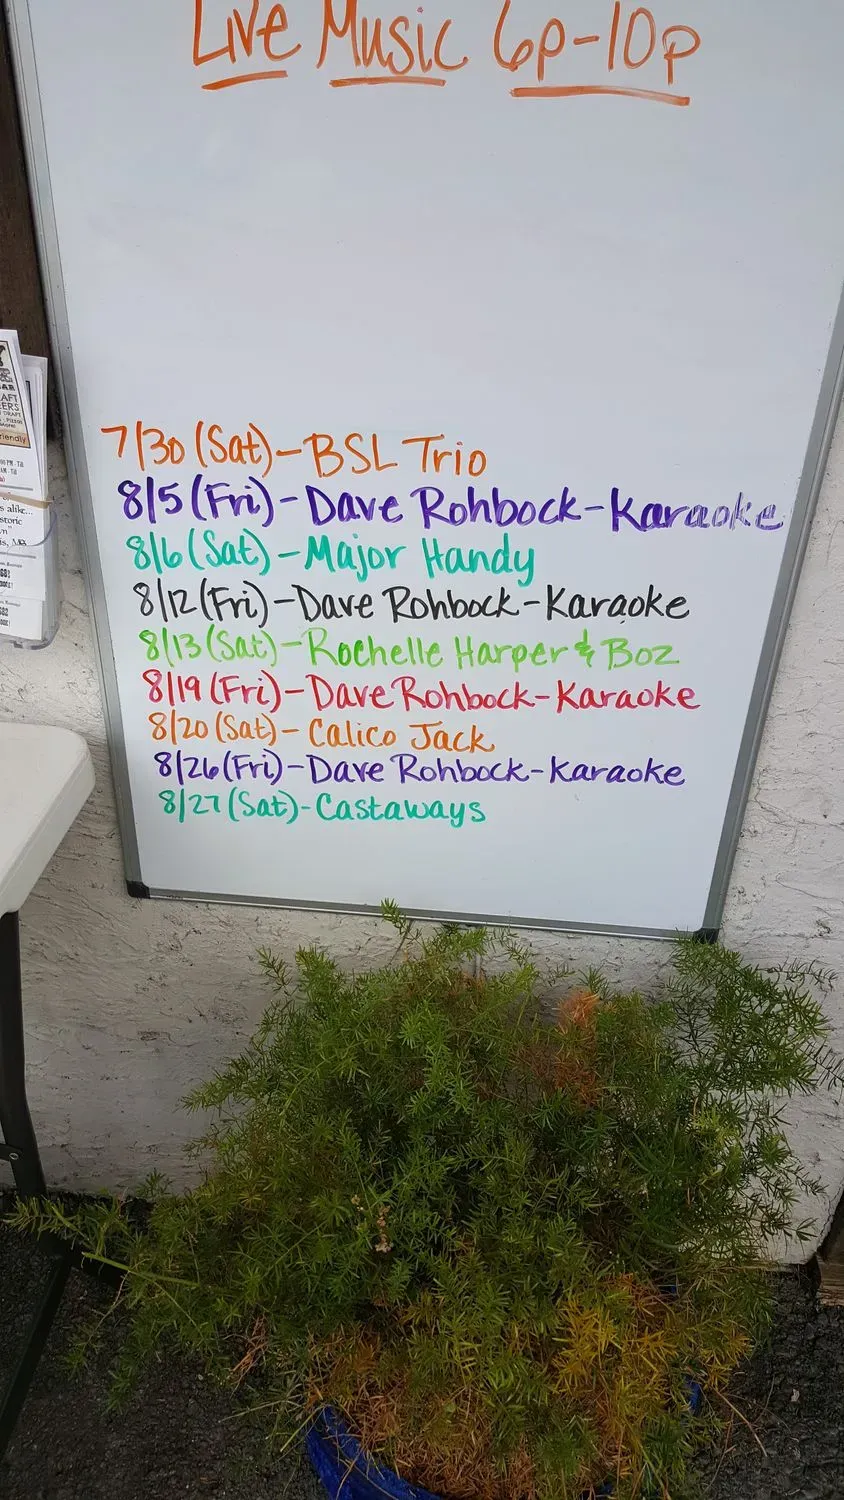 Live Music 6p-10p
7/30 (Sat)-BSL Trio
8/5 (Fri)-Dave Rohbock-Karaoke
8/6 (Sat)-Major Handy
8/12 (Fri)-Dave Rohbock-Karaoke
8/13 (Sat)-Rochelle Harper & Boz
8/19 (Fri)-Dave Rohbock-Karaoke
8/20 (Sat)-Calico Jack
8/26 (Fri)-Dave Rohbock-Karaoke
8/27 (Sat)-Castaways